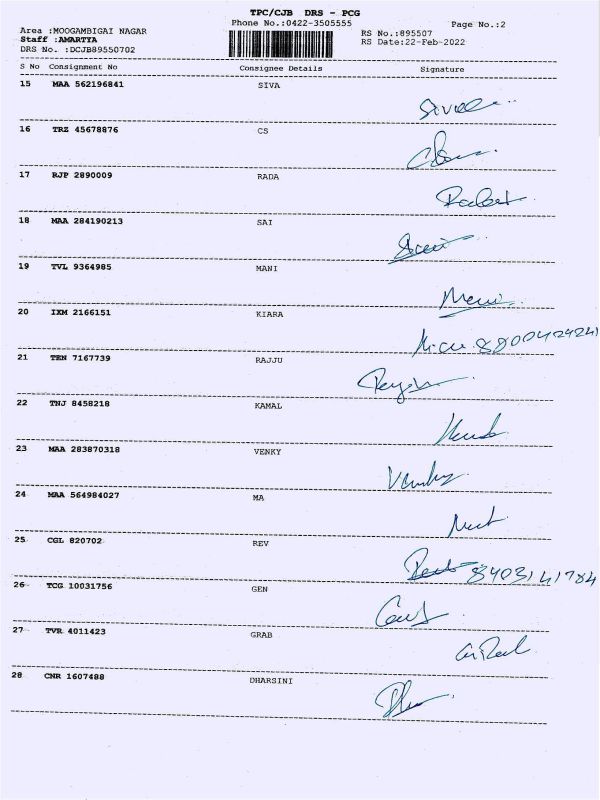 TPC/CJB DRS - PCG
Phone No.:0422-3505555
Page No.:2
Area :MOOGAMBIGAI NAGAR
RS No.:895507
Staff :AMARTYA
RS Date:22-Feb-2022
DRS No. :DCJB89550702
S No Consignment No Consignee Details Signature
15 MAA 562196841 SIVA
16 TRZ 45678876 CS
17 RJP 2890009 RADA
18 MAA 284190213 SAI
19 TVL 9364985 MANI
Mani
20 IXM 2166151 KIARA
21 TEN 7167739 RAJJU
22 TNJ 8458218 KAMAL
23 MAA 283870318 VENKY
24 MAA 564984027 MA
25 CGL 820702 REV
8403141784
26 TCG 10031756 GEN
27 TVR 4011423 GRAB
28 CNR 1607488 DHARSINI